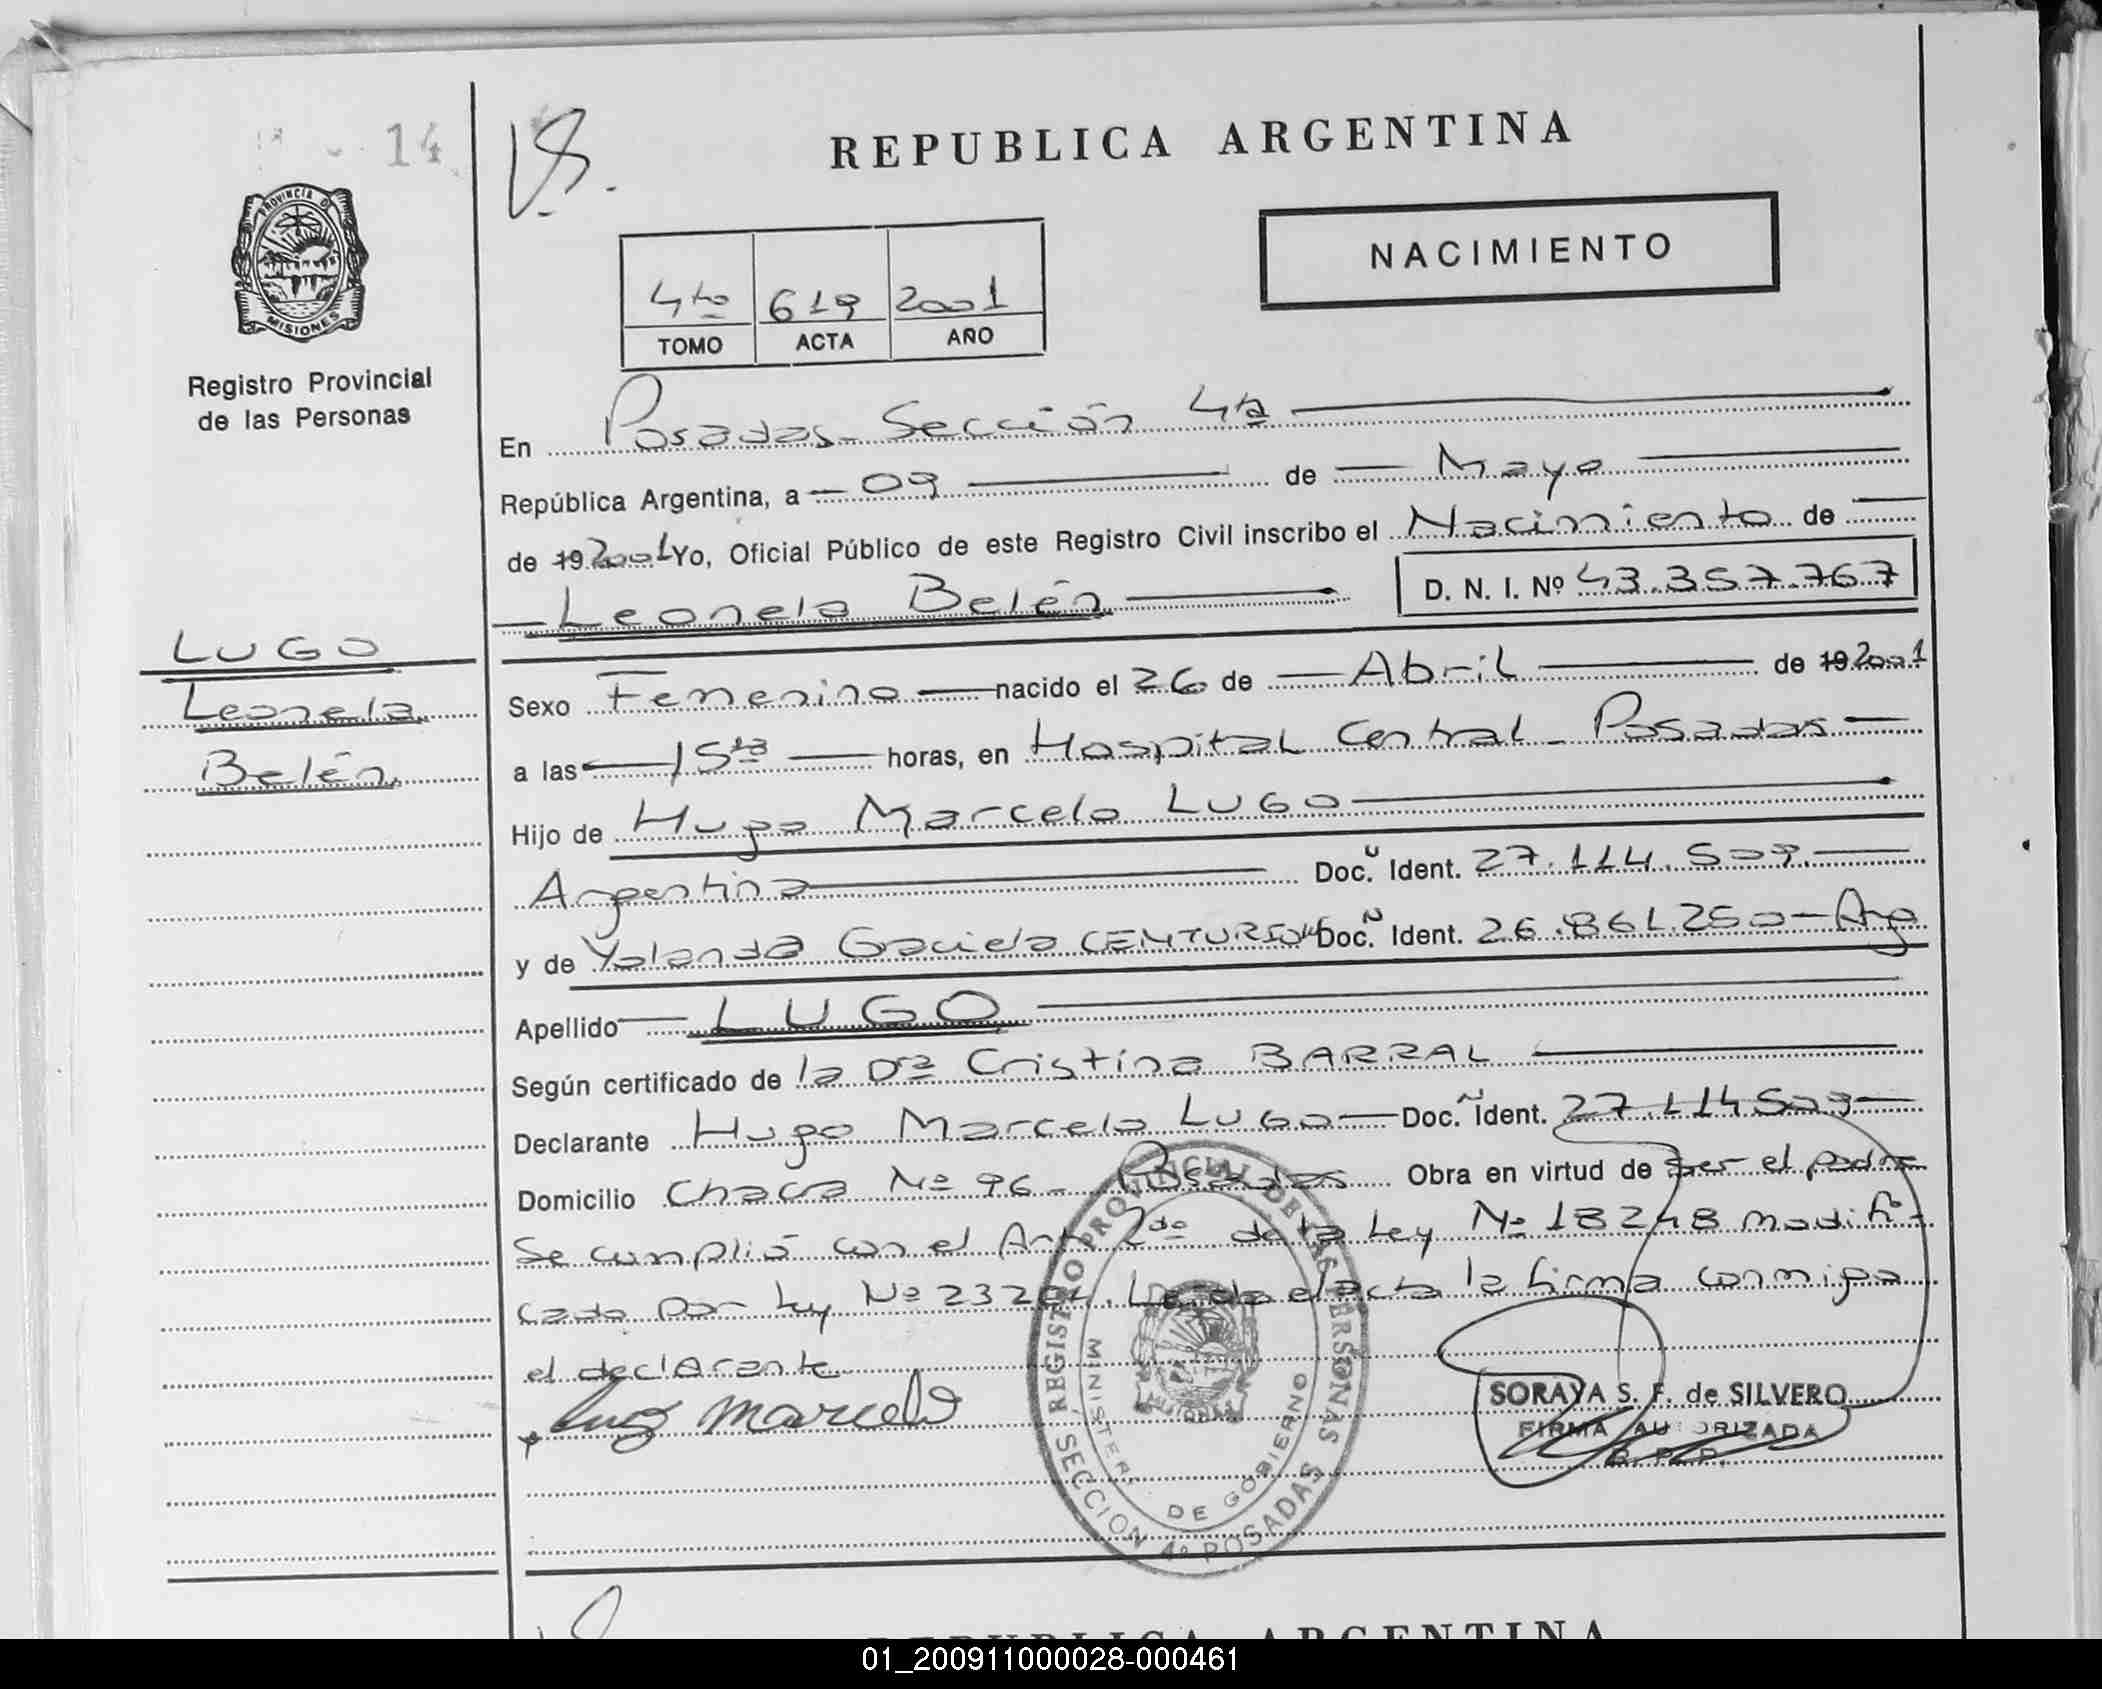 14
REPUBLICA ARGENTINA
NACIMIENTO
4to 619 2001
TOMO ACTA AÑO
PROVINCIA DE
MISIONES
Registro Provincial
de las Personas
En Posadas - Sección 4ta
República Argentina, a 09 de Mayo
de 19 2001 Yo, Oficial Público de este Registro Civil inscribo el Nacimiento de
Leonela Belén D. N. I. Nº 43.357.767
LUGO
Leonela
Belén
Sexo Femenino nacido el 26 de Abril de 19 2001
a las 15 horas, en Hospital Central - Posadas
Hijo de Hugo Marcelo LUGO
Argentina Doc. Ident. 27.114.509
y de Yolanda Graciela CENTURION Doc. Ident. 26.861.250 - Arg
Apellido LUGO
Según certificado de la Dra Cristina BARRAL
Declarante Hugo Marcelo LUGO Doc. Ident. 27.114.509
Domicilio Chacra Nº 96 - Posadas Obra en virtud de ser el padre
Se cumplió con el Art. 2do de la Ley Nº 18248 modifi-
cada por Ley Nº Leída el acta la firma conmigo
el declarante
Lugo Marcelo
REGISTRO PROVINCIAL DE LAS PERSONAS
MINISTERIO DE GOBIERNO
SECCION 4º POSADAS
SORAYA S. F. de SILVERO
FIRMA AUTORIZADA
R. P. P.
REPUBLICA ARGENTINA
01_200911000028-000461